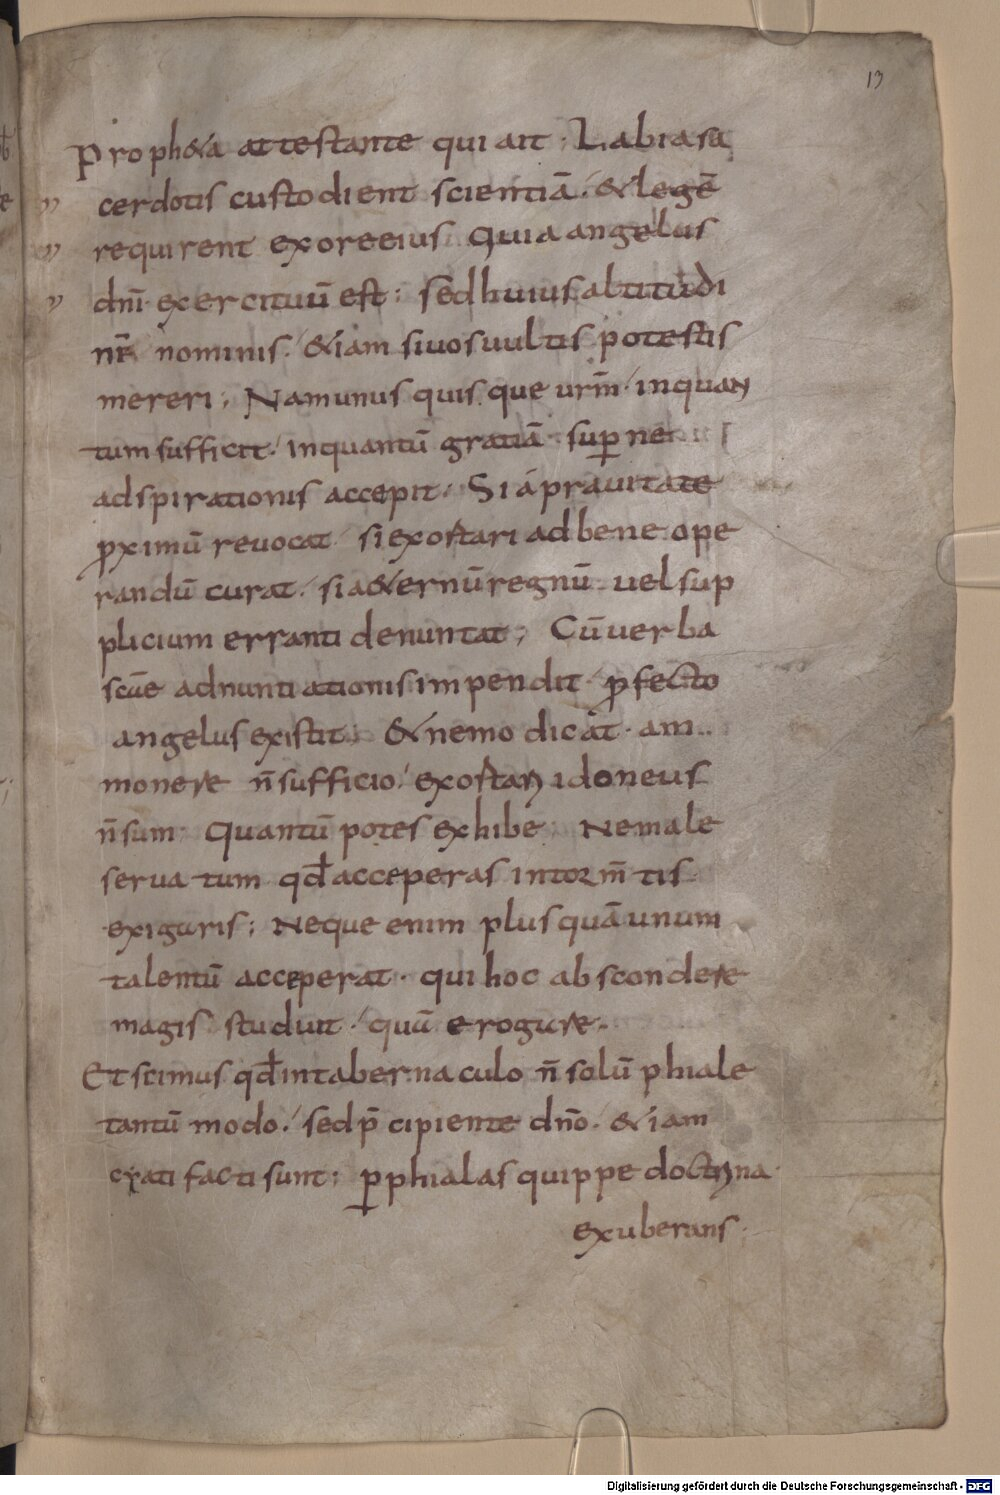 13
Proph&a attestante qui ait · Labia sa
cerdotis custodient scientiā · & legē
requirent ex ore eius Quia angelus
dnī exercituū est ; sed huius altitudi
nē nominis · &iam si uos uultis potestis
mereri ; Nam unus quisque urm̄ inquan
tum sufficit · inquantū gratiā sup̱ne
adspirationis accepit · Si a prauitate
ꝓximū reuocat si exortari ad bene ope
randū curat · si a&ernū regnū uel sup
plicium erranti denuntiat ; Cū uerba
scāe adnuntiationis impendit ꝓfecto
angelus existit · & nemo dicat · am
monere n̄ sufficio · exortari idoneus
n̄ sum · Quantū potes exhibe · Ne male
seruatum qđ acceperas in torm̄tis
exiguris ; Neque enim plus quā unum
talentū acceperat · qui hoc abscondere
magis studuit · quū erogare ·
Et scimus qđ in tabernaculo n̄ solū phiale
tantū modo · sed p̄cipiente dn̄o · &iam
cyati facti sunt ; ꝑ phialas quippe doctrina
exuberans ·
Digitalisierung gefördert durch die Deutsche Forschungsgemeinschaft - DFG